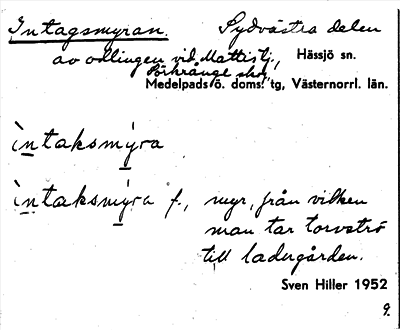 Intagsmyran. Sydvästra delen
av odlingen vid Mattistj., Hässjö sn.
Medelpads ö. doms: tg, Västernorrl. län.
ìntaksmýra
ìntaksmýra f., myr, från vilken
man tar torvströ
till ladugården.
Sven Hiller 1952
9.